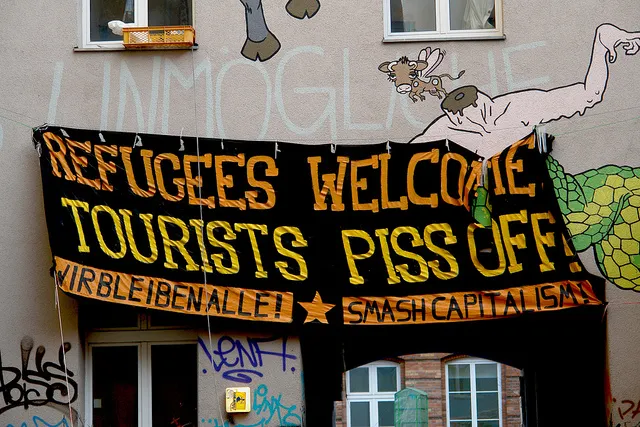 UNMÖGLICHE
REFUGEES WELCOME
TOURISTS PISS OFF!
WIR BLEIBEN ALLE! ★ SMASH CAPITALISM!